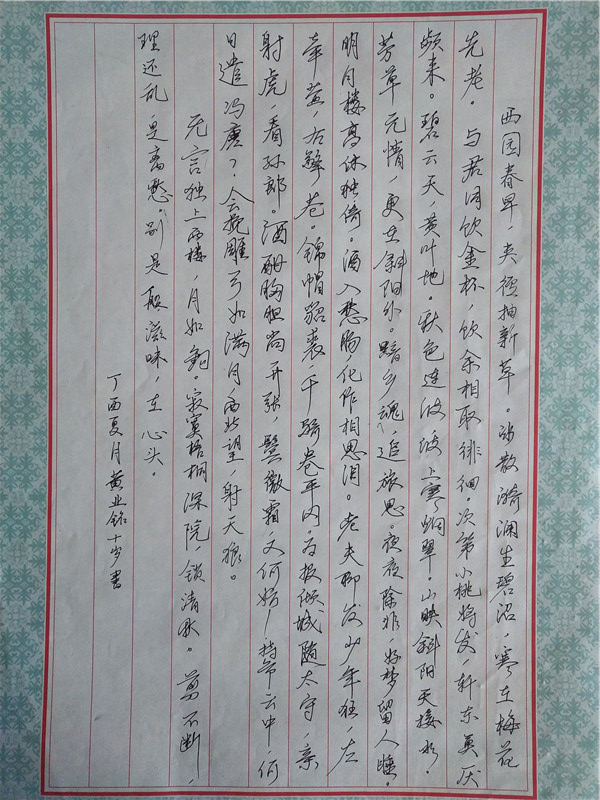 西园春早，夹径抽新草。冰散漪澜生碧沼，寒在梅花
先老。与君同饮金杯，饮余相取徘徊。次第小桃将发，轩车莫厌
频来。碧云天，黄叶地。秋色连波，波上寒烟翠。山映斜阳天接水。
芳草无情，更在斜阳外。黯乡魂，追旅思。夜夜除非，好梦留人睡。
明月楼高休独倚。酒入愁肠化作相思泪。老夫聊发少年狂，左
牵黄，右擎苍。锦帽貂裘，千骑卷平冈。为报倾城随太守，亲
射虎，看孙郎。酒酣胸胆尚开张，鬓微霜，又何妨！持节云中，何
日遣冯唐？会挽雕弓如满月，西北望，射天狼。
无言独上西楼，月如钩。寂寞梧桐深院，锁清秋。剪不断，
理还乱，是离愁。别是一般滋味，在心头。
丁酉夏月黄业铭十岁书